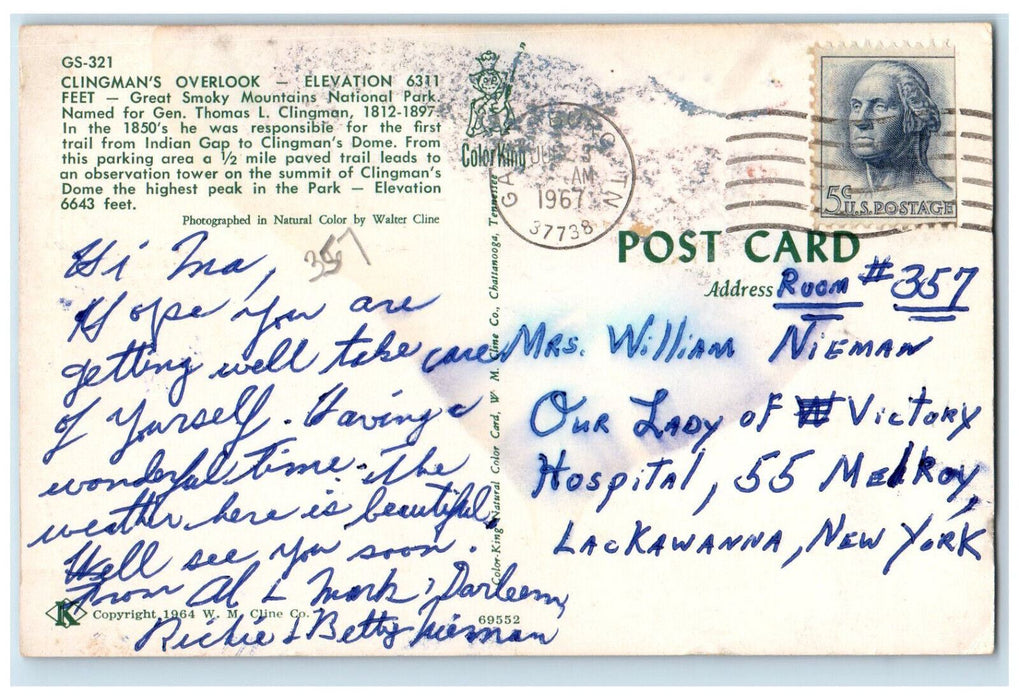 GS-321
CLINGMAN'S OVERLOOK — ELEVATION 6311
FEET — Great Smoky Mountains National Park.
Named for Gen. Thomas L. Clingman, 1812-1897.
In the 1850's he was responsible for the first
trail from Indian Gap to Clingman's Dome. From
this parking area a ½ mile paved trail leads to
an observation tower on the summit of Clingman's
Dome the highest peak in the Park — Elevation
6643 feet.
Photographed in Natural Color by Walter Cline
357
Hi Ma,
Hope you are
getting well take care
of yourself. Having a
wonderful time. The
weather here is beautiful.
Well see you soon.
From Al & Mark, Darleen,
Richie & Betty Nieman
K Copyright 1964 W. M. Cline Co.
69552
ColorKing
Color-King Natural Color Card, W. M. Cline Co., Chattanooga, Tennessee
TN
AM
1967
37738
5¢ U.S. POSTAGE
POST CARD
Address Room #357
Mrs. William Nieman
Our Lady of Victory
Hospital, 55 MelRoy,
Lackawanna, New York